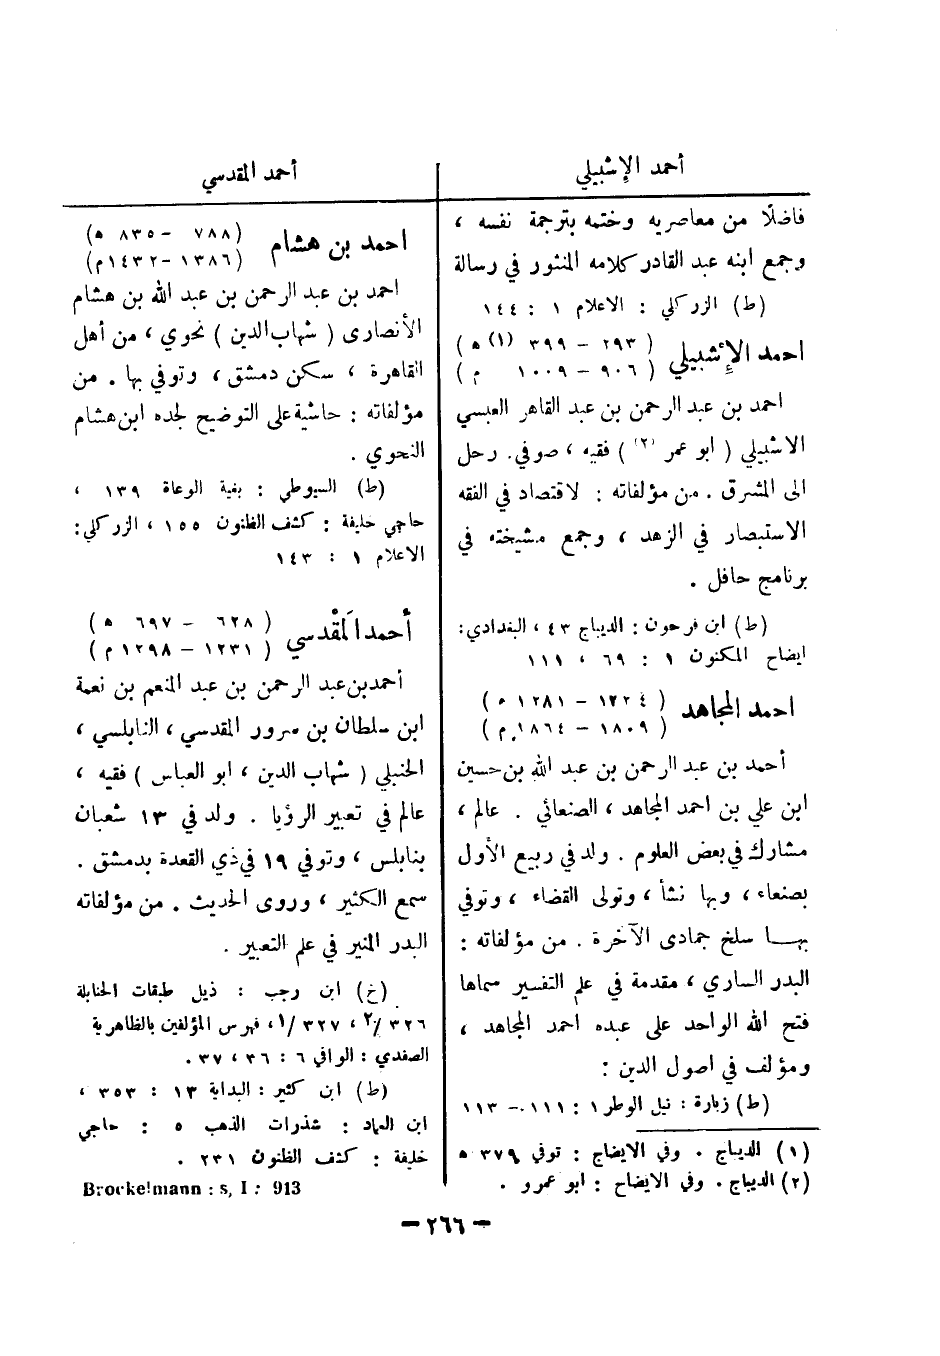 أحمد الإشبيلي
فاضلًا من معاصريه وختمه بترجمة نفسه ،
وجمع ابنه عبد القادر كلامه المنثور في رسالة
(ط) الزركلي : الاعلام ١ : ١٤٤
احمد الإشبيلي ( ٢٩٣ – ٣٩٩ (١) ه )
( ٩٠٦ – ١٠٠٩ م )
احمد بن عبد الرحمن بن عبد القاهر العبسي
الاشبيلي ( ابو عمر (٢) ) فقيه ، صوفي. رحل
الى المشرق . من مؤلفاته : لاقتصاد في الفقه
الاستبصار في الزهد ، وجمع مشيخته في
برنامج حافل .
(ط) ابن فرحون : الديباج ٤٣ ، البغدادي:
ايضاح المكنون ١ : ٦٩ ، ١١١
احمد المجاهد ( ١٢٢٤ – ١٢٨١ ه )
( ١٨٠٩ – ١٨٦٤ م )
أحمد بن عبد الرحمن بن عبد الله بن حسين
ابن علي بن احمد المجاهد ، الصنعائي . عالم ،
مشارك في بعض العلوم . ولد في ربيع الأول
بصنعاء ، وبها نشأ ، وتولى القضاء ، وتوفي
بها سلخ جمادى الآخرة . من مؤلفاته :
البدر الساري ، مقدمة في علم التفسير سماها
فتح الله الواحد على عبده احمد المجاهد ،
ومؤلف في اصول الدين :
(ط) زبارة : نيل الوطر ١ : ١١١ – ١١٣
(١) الديباج . وفي الايضاح : توفي ٣٧٩ ه
(٢) الديباج . وفي الايضاح : ابو عمرو .
أحمد المقدسي
احمد بن هشام (٧٨٨ – ٨٣٥ ه)
(١٣٨٦ – ١٤٣٢م)
احمد بن عبد الرحمن بن عبد الله بن هشام
الأنصارى ( شهاب الدين ) نحوي ، من أهل
القاهرة ، سكن دمشق ، وتوفي بها . من
مؤلفاته : حاشية على التوضيح لجده ابن هشام
النحوي .
(ط) السيوطي : بغية الوعاة ١٣٩ ،
حاجي خليفة : كشف الظنون ١٥٥ ، الزركلي:
الاعلام ١ : ١٤٣
أحمد المَقْدسي ( ٦٢٨ – ٦٩٧ ه )
( ١٢٣١ – ١٢٩٨ م )
أحمد بن عبد الرحمن بن عبد المنعم بن نعمة
ابن سلطان بن سرور المقدسي ، النابلسي ،
الحنبلي ( شهاب الدين ، ابو العباس ) فقيه ،
عالم في تعبير الرؤيا . ولد في ١٣ شعبان
بنابلس ، وتوفي ١٩ في ذي القعدة بدمشق .
سمع الكثير ، وروى الحديث . من مؤلفاته
البدر المنير في علم التعبير .
(خ) ابن رجب : ذيل طبقات الحنابلة
٣٢٦ /٢ ، ٣٢٧ /١ ، فهرس المؤلفين بالظاهرية
الصفدي : الوافي ٦ : ٣٦ ، ٣٧ .
(ط) ابن كثير : البداية ١٣ : ٣٥٣ ،
ابن العماد : شذرات الذهب ٥ : حاجي
خليفة : كشف الظنون ٢٣١ .
Brockelmann : s, I : 913
– ٢٦٦ –